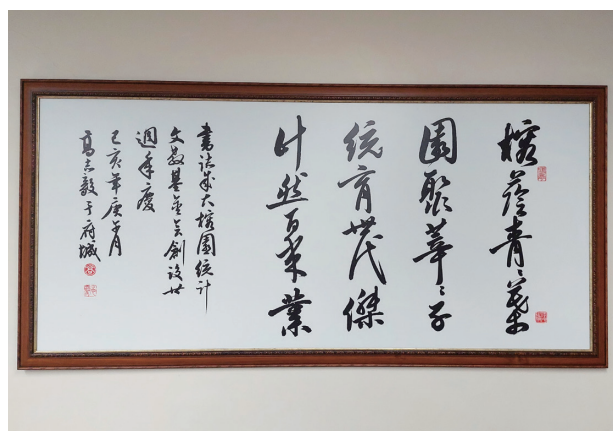 榕蔭青〻
園聚莘〻子
統育世代傑
計然百年業
書誌成大榕園統計
文教基金會創設廿
週年慶
己亥年庚午月
高志毅于府城